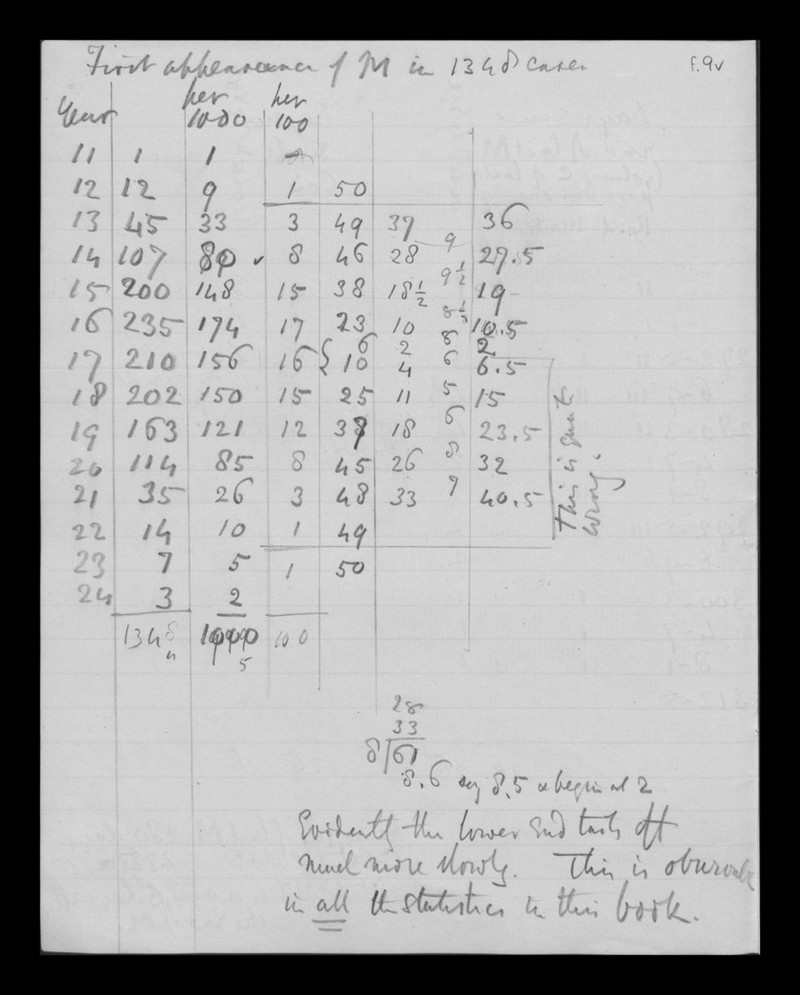 First appearance of M in 1348 cases f.9v
Year per 1000 per 100
11 1 1
12 12 9 1 50
13 45 33 3 49 37 36
14 107 80 ✓ 8 46 28 9 27.5
15 200 148 15 38 18½ 9½ 19
16 235 174 17 23 10 8½ 10.5
6 2 8 2
17 210 156 16 { 10 4 6 6.5
18 202 150 15 25 11 5 15
19 163 121 12 37 18 6 23.5
20 114 85 8 45 26 8 32
21 35 26 3 48 33 7 40.5
22 14 10 1 49
23 7 5 1 50
24 3 2
1348 1000 100
4 5
This is quite wrong.
28
33
8 61
8.6 say 8.5 & begin at 2
Evidently the lower end tails off
much more slowly. This is observable
in all the statistics in this book.